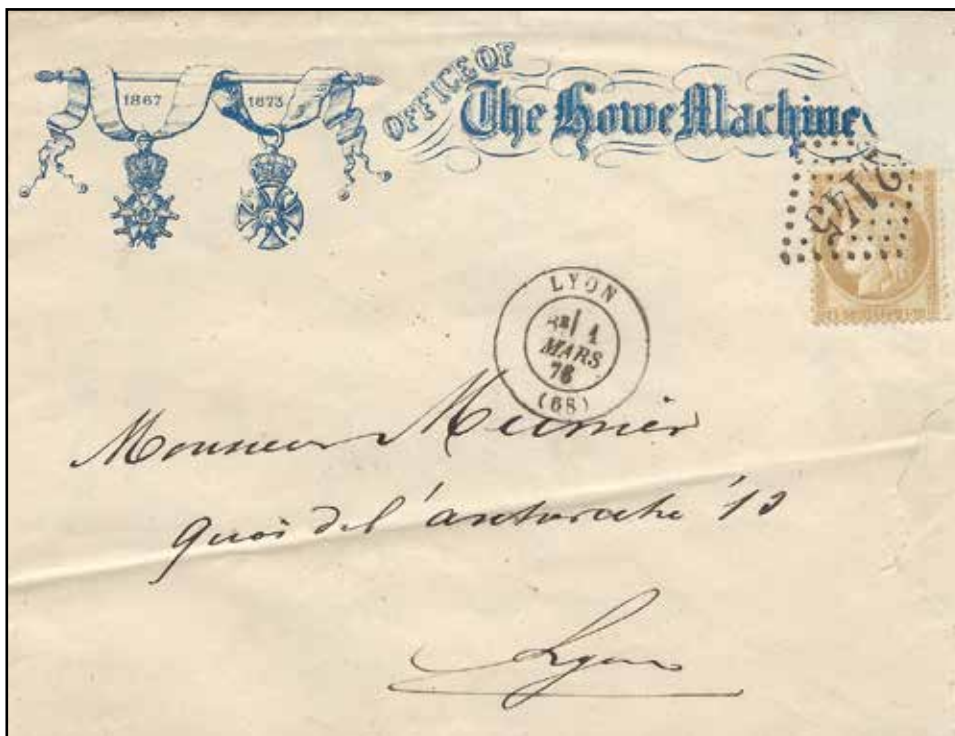 1867
1873
OFFICE OF
The Howe Machine
2145
LYON
1
MARS
76
(68)
Monsieur Meunier
quai de l'
13
Lyon